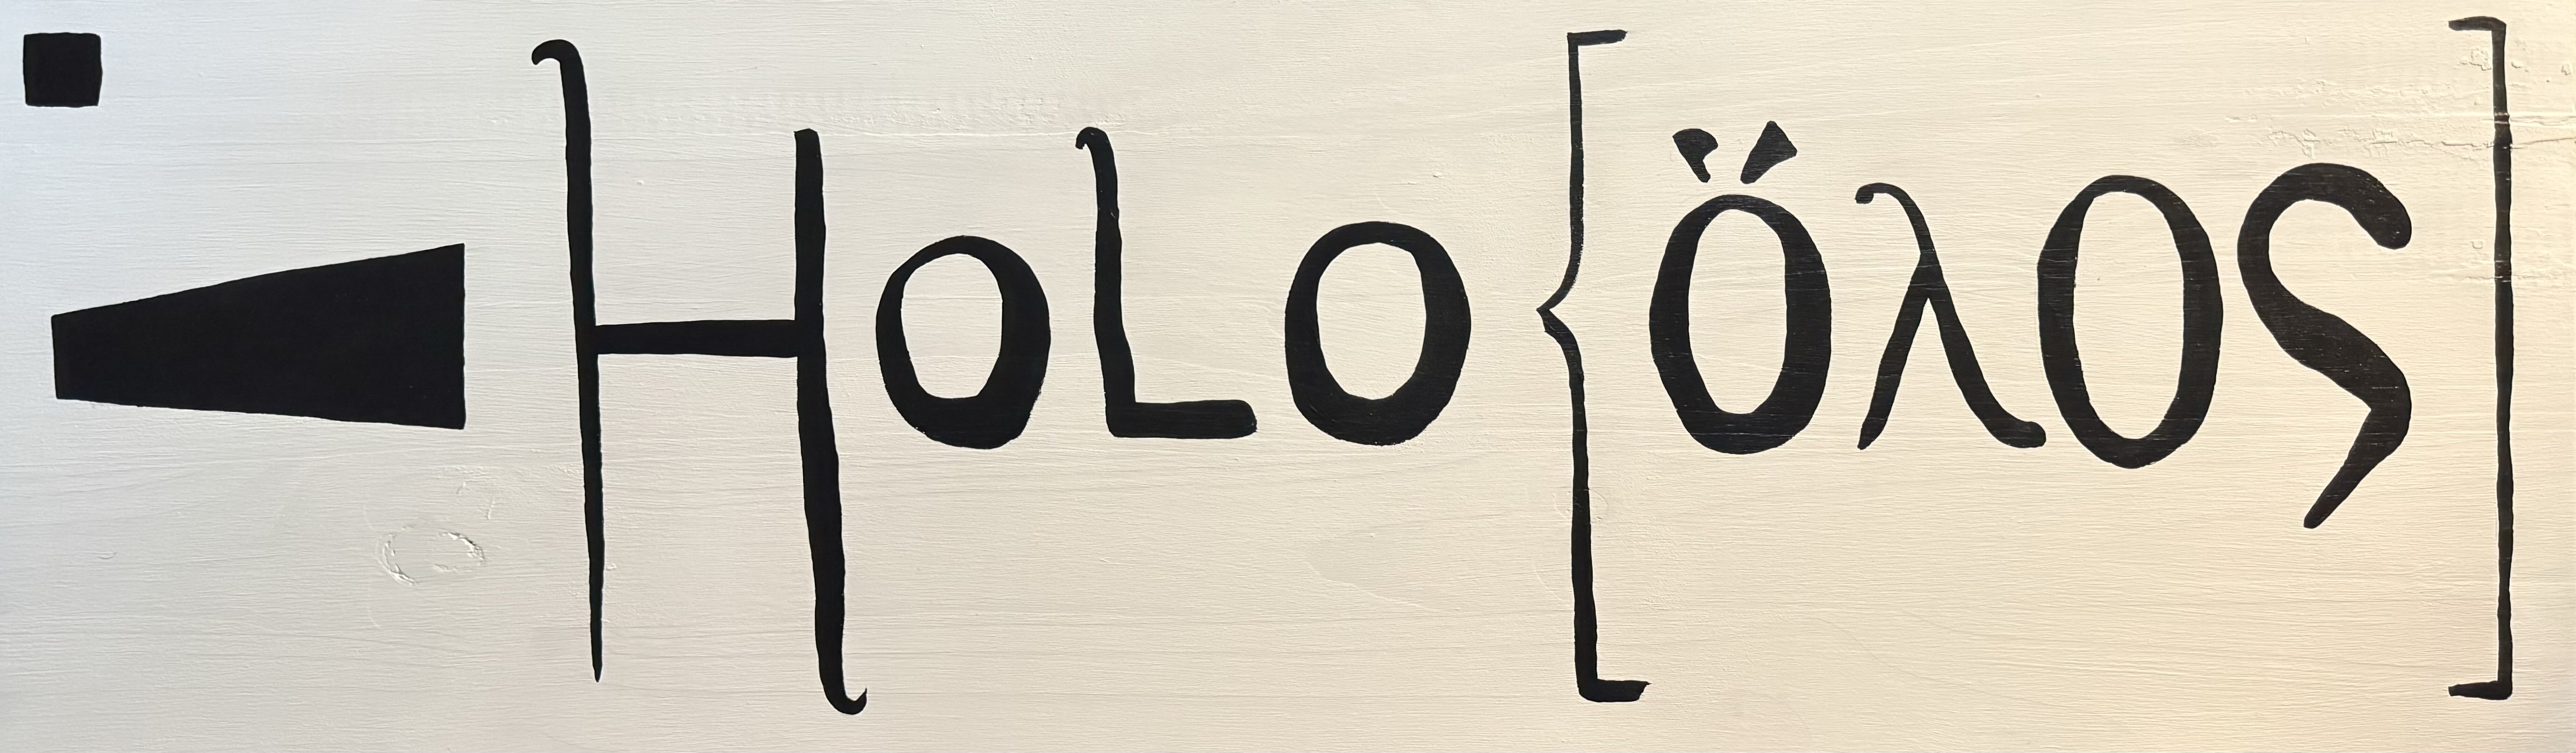 HoLo {ὅλος]